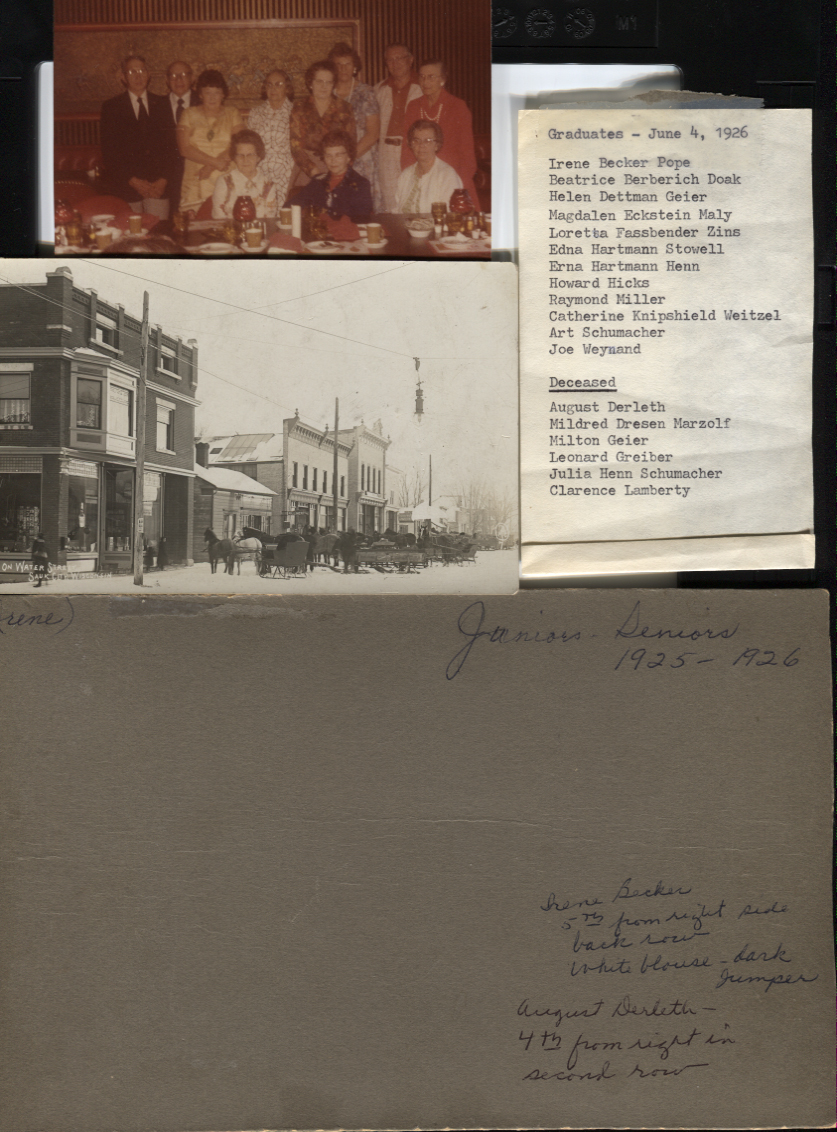 Graduates - June 4, 1926
Irene Becker Pope
Beatrice Berberich Doak
Helen Dettman Geier
Magdalen Eckstein Maly
Loretta Fassbender Zins
Edna Hartmann Stowell
Erna Hartmann Henn
Howard Hicks
Raymond Miller
Catherine Knipshield Weitzel
Art Schumacher
Joe Weynand
Deceased
August Derleth
Mildred Dresen Marzolf
Milton Geier
Leonard Greiber
Julia Henn Schumacher
Clarence Lamberty
ON WATER
SAUK CITY
rene)
Juniors - Seniors
1925 - 1926
Irene Becker
5th from right side
back row
White blouse - dark
Jumper
August Derleth -
4th from right in
second row